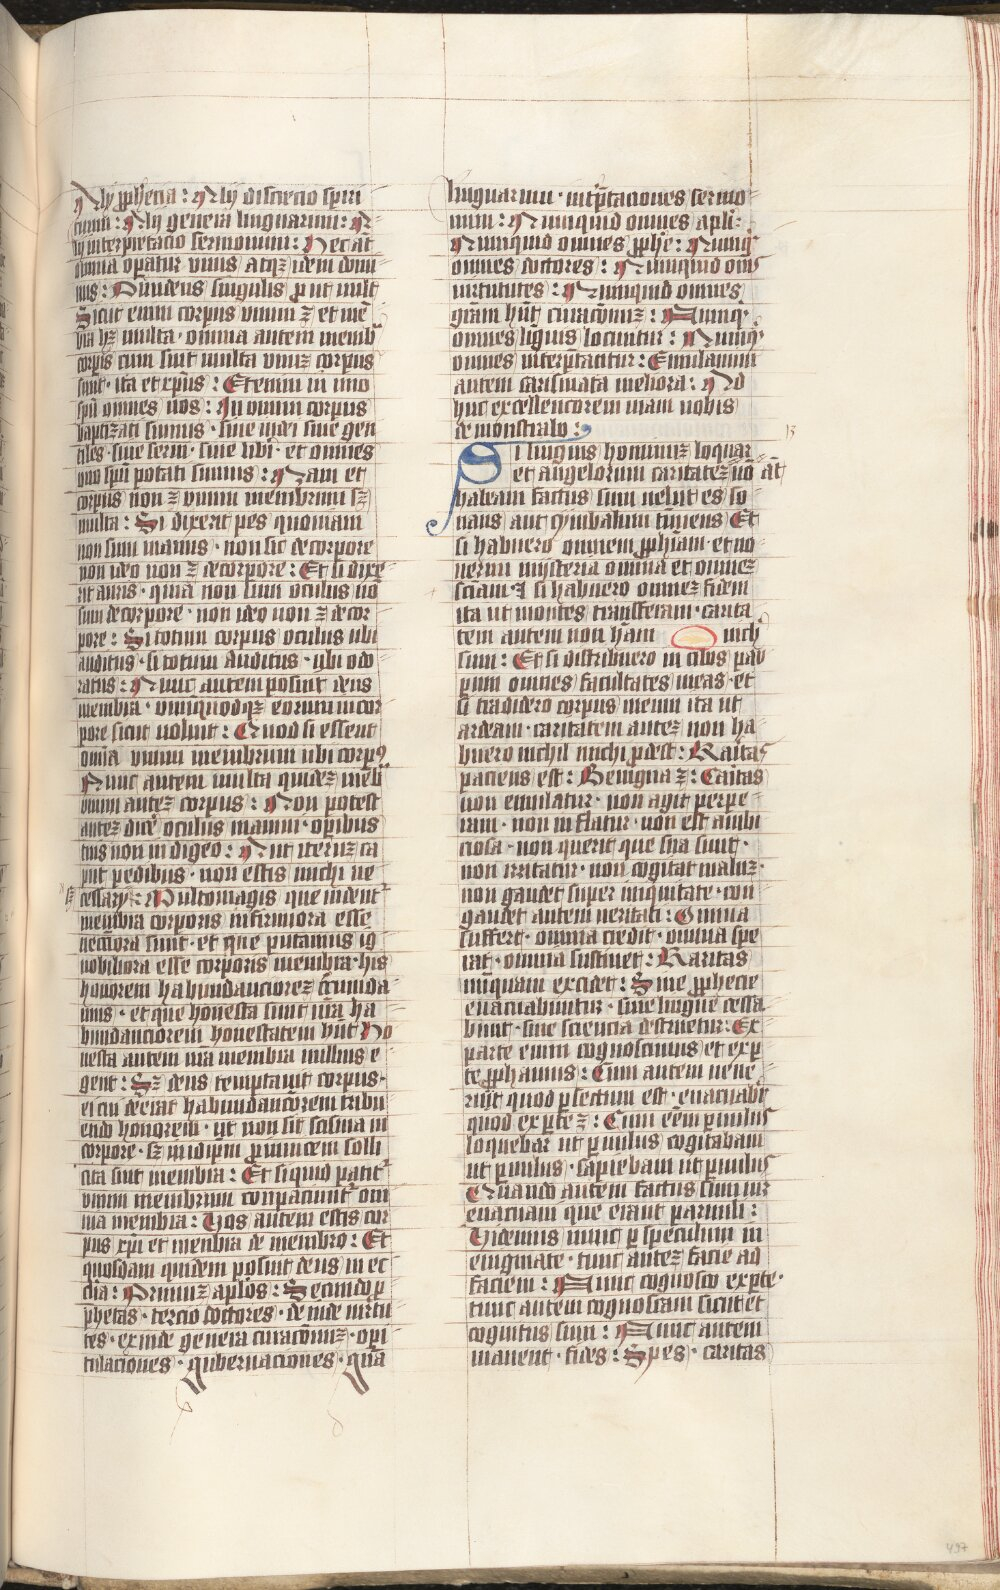 Aly prophecia : Aly discrecio spiri
tuum : Aly genera linguarum : A
ly interpretacio sermonum : Hec aut
omnia operatur unus atqz idem domi
nus : Diuidens singulis prout uult
Sicut enim corpus unum z et mem
bra hz multa · omnia autem membra
corpis cum sint multa unuz corpus
sunt · ita et xpus : Etenim in uno
spu omnes nos : In unum corpus
baptizati sumus · siue iudei siue gen
tiles · siue serui · siue libi · et omnes
uno spu potati sumus : Nam et
corpus non z unum membrum sz
multa : Si dixerit pes quoniam
non sum manus · non sic de corpore
non ideo non z de corpore : Et si dixe
rit auris · quia non sum oculus no
sum de corpore · non ideo non z de cor
pore : Si totum corpus oculus ubi
auditus · si totum auditus · ubi odo
ratus : Nunc autem posuit deus
membra · unumquodqz eorum in cor
pore sicut uoluit : Quod si essent
omia unum membrum ubi corpus
Nunc autem multa quidez mebra
unum autez corpus : Non potest
autez dice oculus manui · opibus
tuis non indigeo : Aut iteruz ca
put pedibus · non estis michi ne
cessary : Multomagis que uident
membra corporis infirmiora esse
necciora sunt · et que putamus ig
nobiliora esse corporis membra · his
honorem habundanciorez circumda
mus · et que honesta sunt nra ha
bundanciorem honestatem hnt Ho
nesta autem nra membra nullius e
gent : Sz deus temptauit corpus ·
ei cui deerat habundanciorem tribu
endo honorem · ut non sit scisma in
corpore · sz in idipm pro inuicem solli
cita sint membra : Et si quid patit
unum membrum conpaciunt om
nia membra : Uos autem estis cor
pus xpi et menbra de membro : Et
quosdam quidem posuit deus in ec
clia : Primuz aplos : Secundo p
phetas · tercio doctores · deinde uirtu
tes · exinde genera curacionuz · opi
tulaciones · gubernaciones · gna
linguarum · interptaciones sermo
num : Nunquid omnes apli :
Nunquid omnes pphe : Nunq
omnes doctores : Nunquid oms
uirtutes : Nunquid omnes
gram hnt curacionuz : Nunq
omnes liguis locuntur : Nunq
omnes interptantur : Emulamini
autem carismata meliora : Ad
huc excellenciorem uiam uobis
demonstrabo :
13
Si linguis hominuz loquar
et angelorum caritatez no at
habeam factus sum uelut es so
nans aut cymbalum tiniens Et
si habuero omnem pphiam · et no
uerim misteria omnia et omnez
sciam · Et si habuero omnez fidem
ita ut montes transferam · carita
tem autem non ham nich
sum : Et si distribuero in cibos pau
perum omnes facultates meas · et
si tradidero corpus meum ita ut
ardeam · caritatem autez non ha
buero nichil michi pdest : Karitas
paciens est : Benigna z : Caritas
non emulatur · non agit perpe
ram · non inflatur · non est ambi
ciosa · non querit que sua sunt ·
non irritatur · non cogitat maluz ·
non gaudet super iniquitate · con
gaudet autem ueritati : Omnia
suffert · omnia credit · omnia spe
rat · omnia sustinet : Karitas
nunquam excidet : Siue pphecie
euacuabuntur · siue lingue cessa
bunt · siue sciencia destruetur : Ex
parte enim cognoscimus et ex p
te pphamus : Cum autem uene
rit quod pfectum est · euacuabit
quod ex pte z : Cum eem puulus
loquebar ut puulus cogitabam
ut puulus · sapiebam ut puulus
Quando autem factus sum uir
euacuaui que erant paruuli :
Uidemus nunc p speculum in
enigmate · tunc autez facie ad
faciem : Nunc cognosco ex pte ·
tunc autem cognoscam sicut et
cognitus sum : Nunc autem
manent · fides : Spes · caritas
497